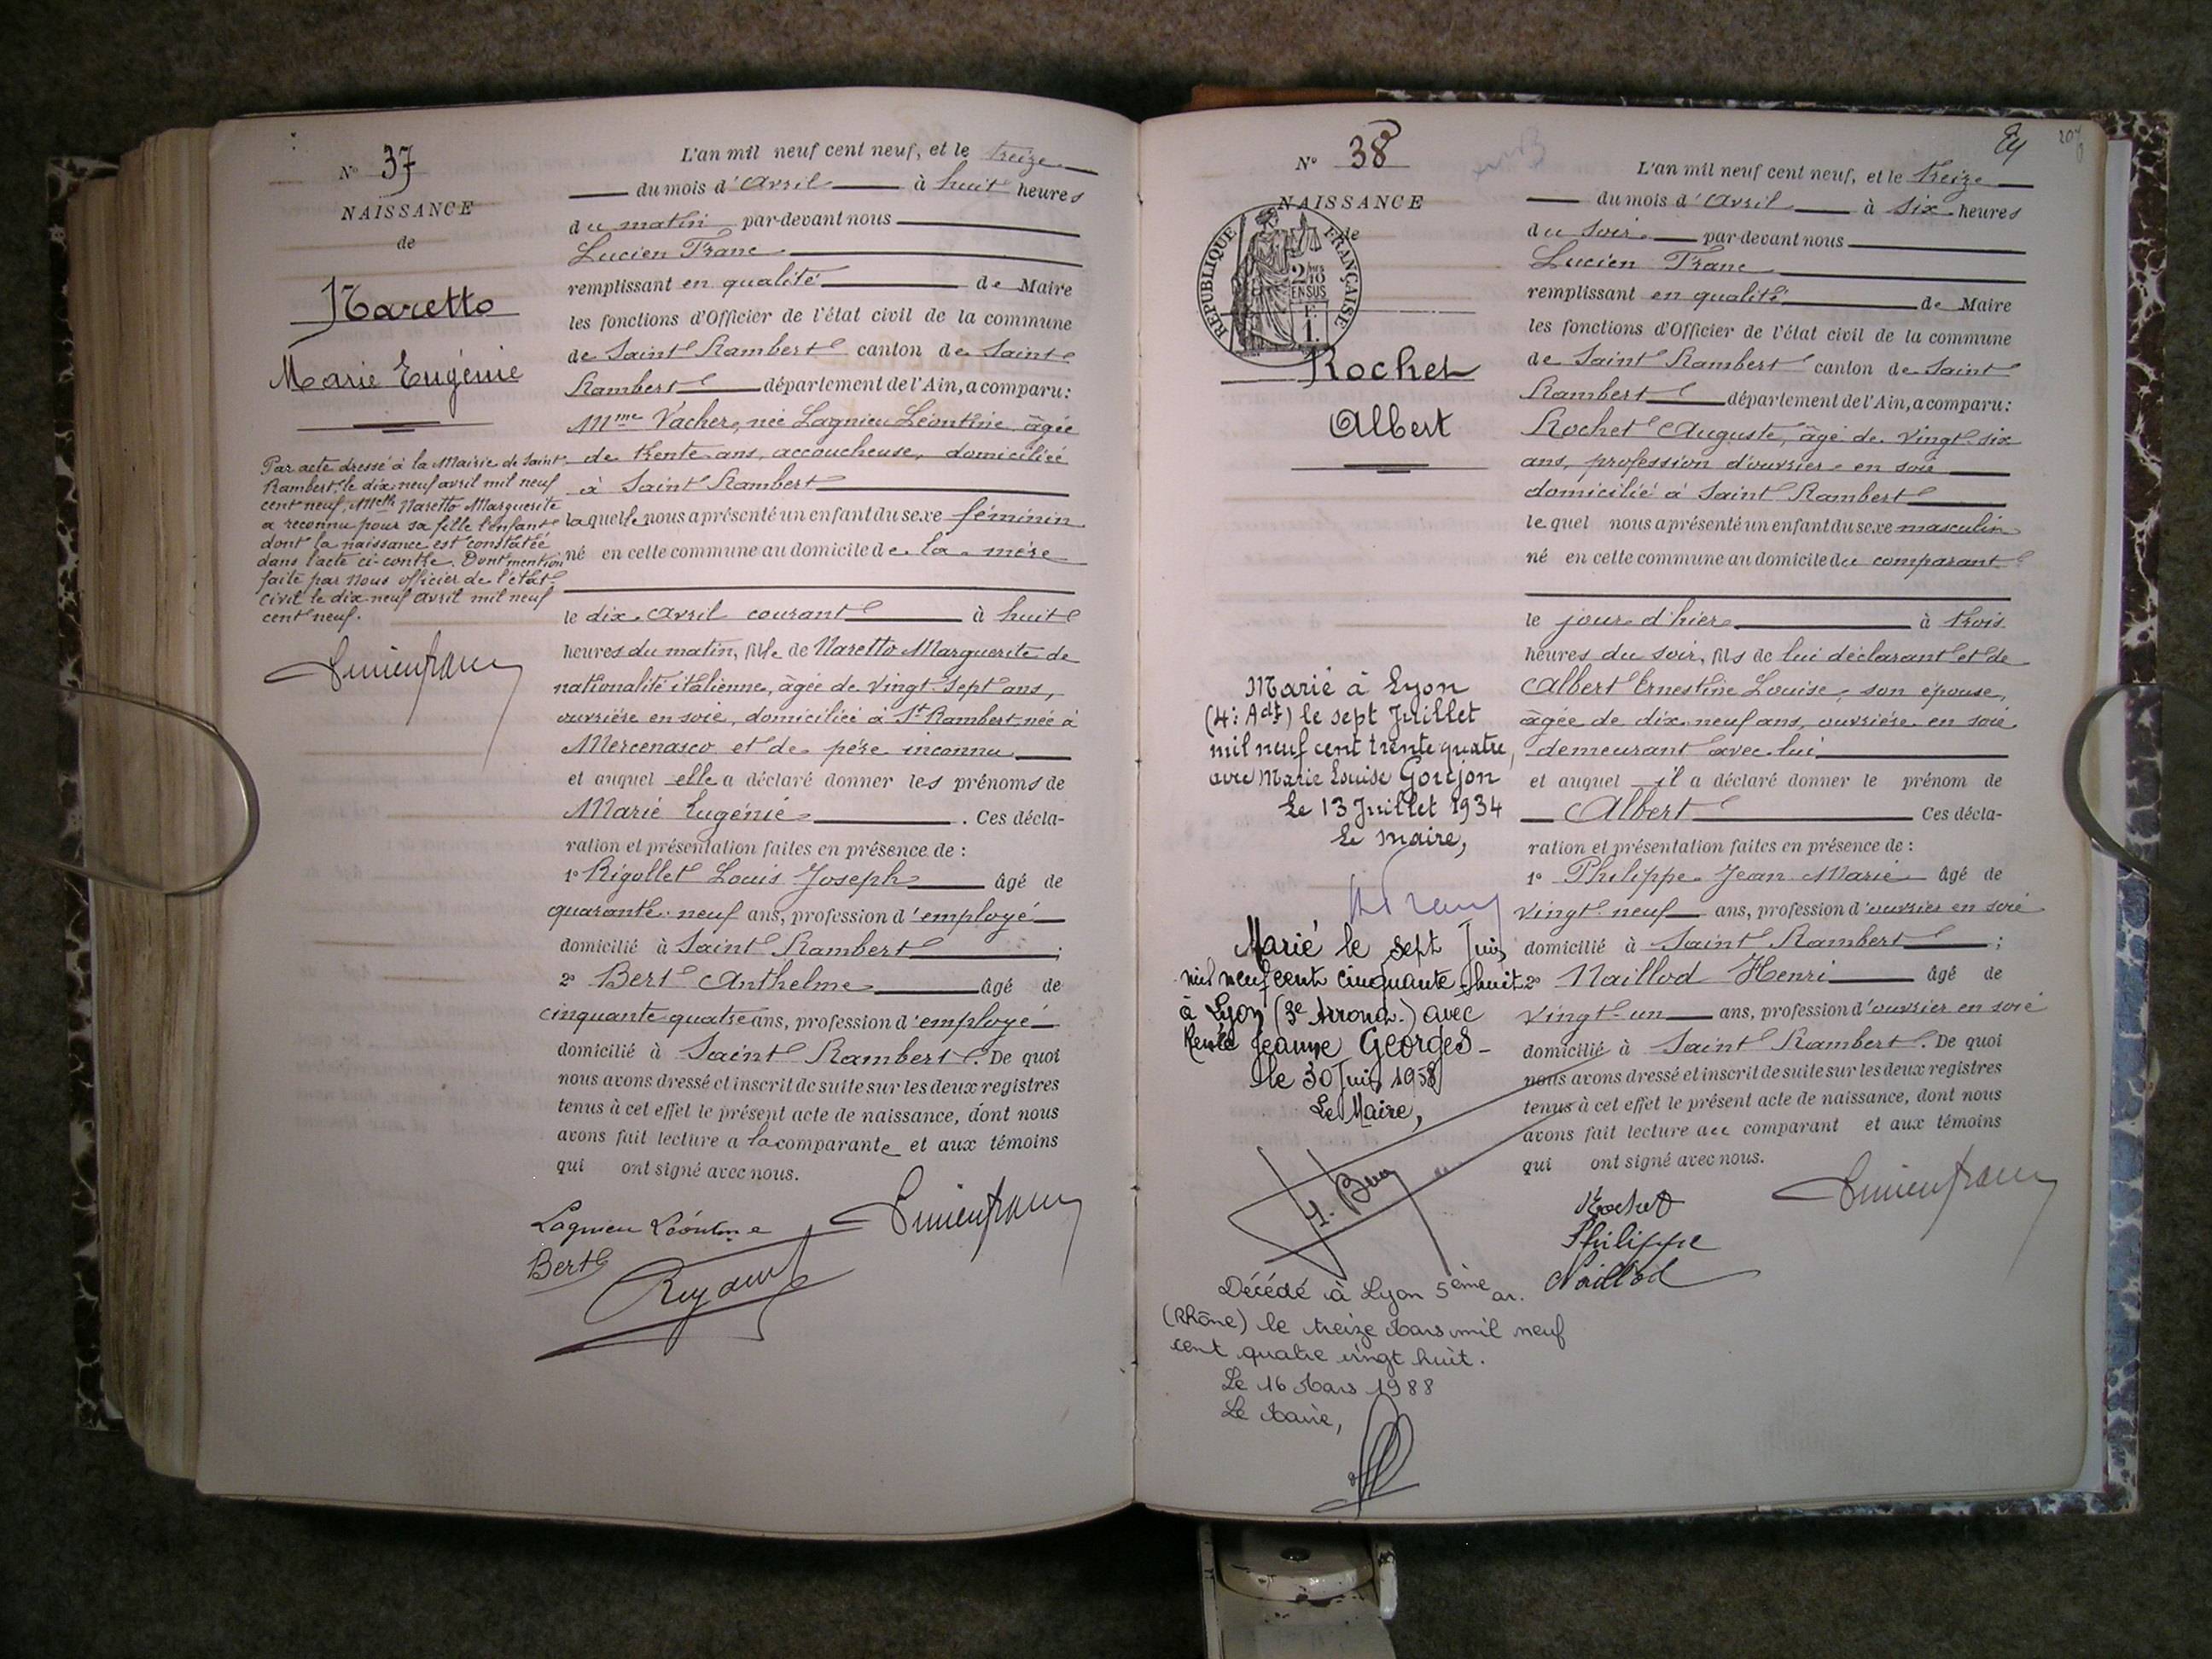 N° 37
NAISSANCE
de
Naretto
Marie Eugénie
Par acte dressé à la Mairie de Saint
Rambert, le dix neuf avril mil neuf
cent neuf, Melle Naretto Marguerite
a reconnu pour sa fille l'enfant
dont la naissance est constatée
dans l'acte ci-contre. Dont mention
faite par Nous officier de l'état
civil le dix neuf avril mil neuf
cent neuf.
Lucien Franc
L'an mil neuf cent neuf, et le treize
du mois d'Avril à huit heures
du matin par-devant nous
Lucien Franc
remplissant en qualité de Maire
les fonctions d'Officier de l'état civil de la commune
de Saint Rambert canton de Saint
Rambert département de l'Ain, a comparu:
Mme Vacher, née Lagnieu Léontine âgée
de trente ans, accoucheuse, domiciliée
à Saint Rambert
laquelle nous a présenté un enfant du sexe féminin
né en cette commune au domicile de la mère
le dix Avril courant à huit
heures du matin, fille de Naretto Marguerite de
nationalité italienne, âgée de vingt sept ans,
ouvrière en soie, domiciliée à St Rambert née à
Mercenasco et de père inconnu
et auquel elle a déclaré donner les prénoms de
Marie Eugénie. Ces décla-
ration et présentation faites en présence de :
1° Rigollet Louis Joseph âgé de
quarante neuf ans, profession d'employé
domicilié à Saint Rambert ;
2° Bert Anthelme âgé de
cinquante quatre ans, profession d'employé
domicilié à Saint Rambert. De quoi
nous avons dressé et inscrit de suite sur les deux registres
tenus à cet effet le présent acte de naissance, dont nous
avons fait lecture a la comparante et aux témoins
qui ont signé avec nous.
Lagnieu Léontine Lucien Franc
Bert
84
N° 38
NAISSANCE
de
RÉPUBLIQUE FRANÇAISE
2/10
EN SUS
Rochet
Albert
Marié à Lyon
(4e Adt) le sept Juillet
mil neuf cent trente quatre,
avec Marie Louise Goujon
Le 13 Juillet 1934
Le Maire,
Marié le sept Juin
mil neuf cent cinquante huit
à Lyon (3e Arrond.) avec
Renée Jeanne Georges
le 30 Juin 1958
Le Maire,
Décédé à Lyon 5ème ar.
(Rhône) le treize Mars mil neuf
cent quatre vingt huit.
Le 16 Mars 1988
Le Maire,
L'an mil neuf cent neuf, et le treize
du mois d'Avril à six heures
du soir par-devant nous
Lucien Franc
remplissant en qualité de Maire
les fonctions d'Officier de l'état civil de la commune
de Saint Rambert canton de Saint
Rambert département de l'Ain, a comparu:
Rochet Auguste, âgé de vingt six
ans, profession d'ouvrier en soie
domicilié à Saint Rambert
lequel nous a présenté un enfant du sexe masculin
né en cette commune au domicile du comparant
le jour d'hier à trois
heures du soir, fils de lui déclarant et de
Albert Ernestine Louise, son épouse,
âgée de dix neuf ans, ouvrière en soie
demeurant avec lui
et auquel il a déclaré donner le prénom de
Albert Ces décla-
ration et présentation faites en présence de :
1° Philippe Jean Marie âgé de
vingt neuf ans, profession d'ouvrier en soie
domicilié à Saint Rambert ;
2° Naillod Henri âgé de
vingt un ans, profession d'ouvrier en soie
domicilié à Saint Rambert. De quoi
nous avons dressé et inscrit de suite sur les deux registres
tenus à cet effet le présent acte de naissance, dont nous
avons fait lecture au comparant et aux témoins
qui ont signé avec nous.
Rochet Lucien Franc
Philippe
Naillod